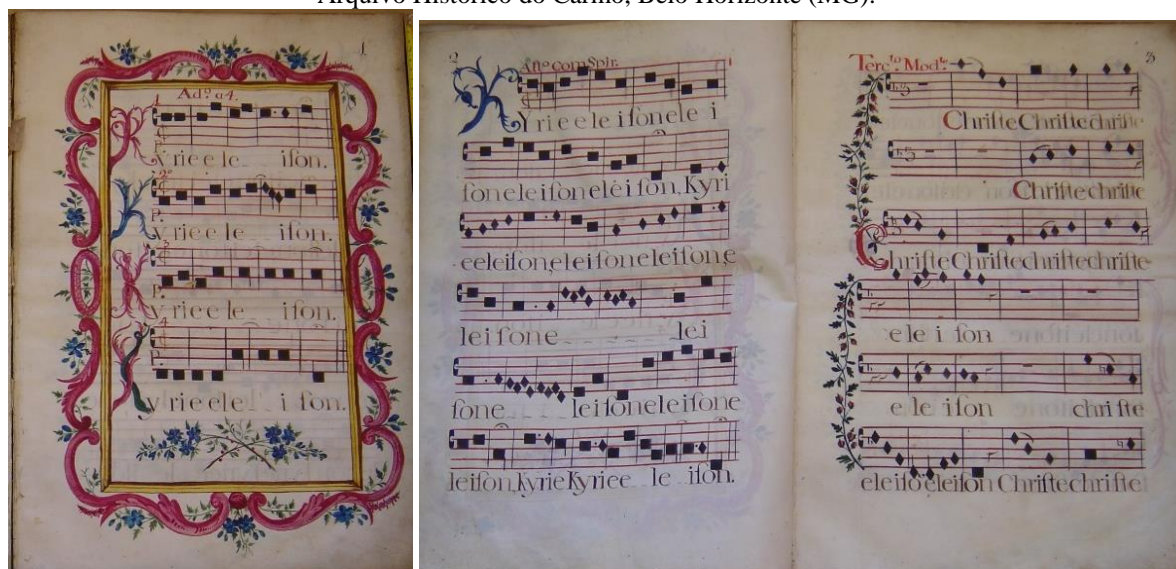 Arquivo Histórico do Carmo, Belo Horizonte (MG).
1
Ad.º a 4.
1
Kyrie e le iſon.
2º
Kyrie e le iſon.
3
Kyrie e le iſon.
4
Kyrie e le i ſon.
2
And.º com Spir.
1
KYrie e le i ſonele i
ſoneleiſoneleiſon, Kyri
eeleiſon,eleiſoneleiſon,e
leiſone lei
ſone leiſoneleiſone
leiſon,KyrieKyriee le iſon.
Terc.to Mod.to
3
ChriſteChriſtechriſte
Chriſtechriſte
ChriſteChriſtechriſtechriſte
e le i ſon
e le iſon chri ſte
eleiſo eleiſon Chriſtechriſte